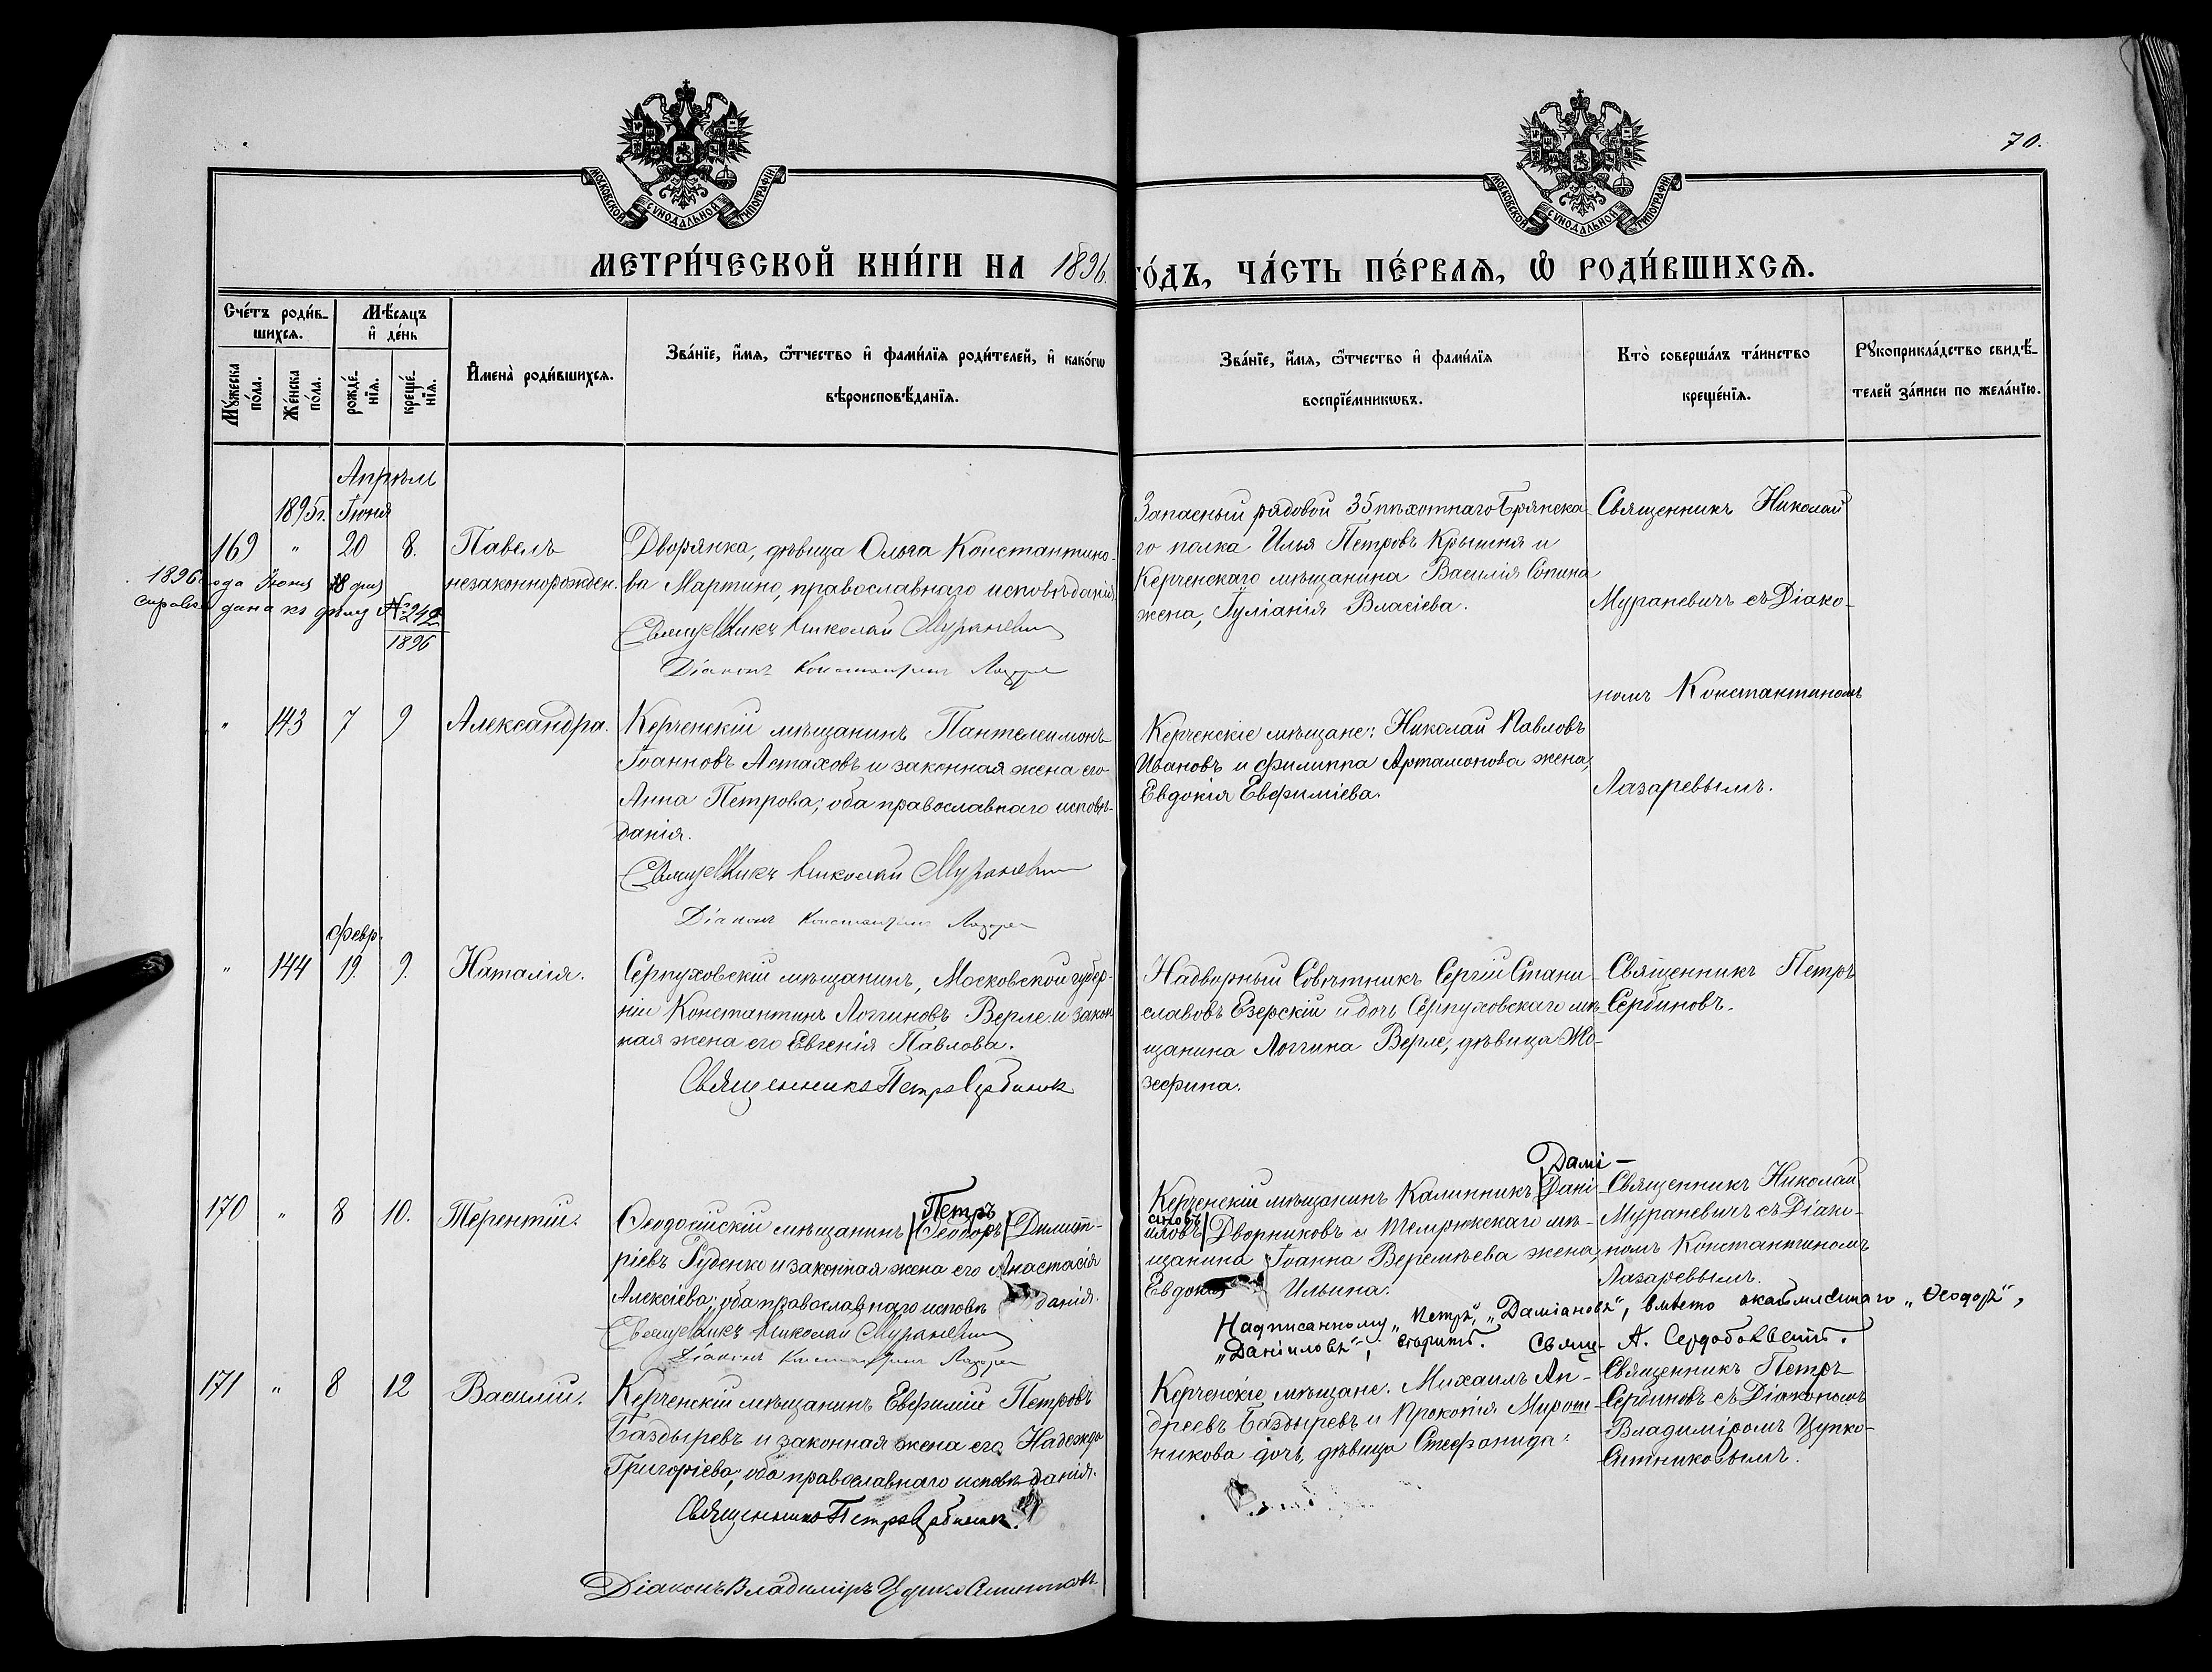 70.
МОСКОВСКОЙ СѴНОДАЛЬНОЙ ТИПОГРАФІИ
МОСКОВСКОЙ СѴНОДАЛЬНОЙ ТИПОГРАФІИ
МЕТРИ́ЧЕСКОЙ КНИ́ГИ НА 1896.
ГО́ДЪ, ЧА́СТЬ ПЕ́РВАѦ, Ѽ РОДИ́ВШИХСѦ.
Сче́тъ роди́в-
шихсѧ.
Мꙋ́жеска
по́ла.
Же́нска
по́ла.
Мѣ́сѧцъ
и҆ де́нь
рожде́-
нїѧ.
креще́-
нїѧ.
И҆мена̀ роди́вшихсѧ.
Зва́нїе, и҆́мѧ, ѻ҆́тчество и҆ фами́лїѧ роди́телей, и҆ како́гѡ
вѣроисповѣ́данїѧ.
Зва́нїе, и҆́мѧ, ѻ҆́тчество и҆ фами́лїѧ
воспрїе́мникѡвъ.
Кто̀ соверша́лъ та́инство
креще́нїѧ.
Рꙋкоприкла́дство свидѣ́-
телей за́писи по жела́нїю.
Апрѣль
1895г. Іюня
169 " 20 8. Павелъ
незаконнорожден.
1896 года Іюня 18 дня
справка дана къ дѣлу №242
1896
Дворянка, дѣвица Ольга Константино-
ва Мартино, православнаго исповѣданія
Священникъ Николай Мураневич
Діаконъ Константинъ Лазарев
Запасный рядовой 35 пѣхотнаго Брянска-
го полка Илья Петровъ Крышня и
Керченскаго мѣщанина Василія Сопина
жена, Іуліанія Власіева.
Священникъ Николай
Мураневичъ съ Діако-
номъ Константиномъ
Лазаревымъ.
" 143 7 9 Александра.
Керченскій мѣщанинъ Пантелеимонъ
Іоанновъ Астаховъ и законная жена его
Анна Петрова; оба православнаго исповѣ-
данія.
Священникъ Николай Мураневич
Діаконъ Константинъ Лазарев
Керченскіе мѣщане: Николай Павловъ
Ивановъ и Филиппа Артамонова жена,
Евдокія Евфиміева.
Февр.
" 144 19. 9. Наталія.
Серпуховскій мѣщанинъ, Московской губер-
ніи Константинъ Логгиновъ Верле и закон
ная жена его Евгенія Павлова.
Священникъ Петръ Сербинов
Надворный Совѣтникъ Сергій Стани-
славовъ Езерскій и дочь Серпуховскаго мѣ-
щанина Логгина Верле, дѣвица Жо-
зефина.
Священникъ Петръ
Сербиновъ.
170 " 8 10. Терентій.
Петръ
Ѳеодосійскій мѣщанинъ Ѳеодоръ Димит-
ріевъ Руденко и законная жена его Анастасія
Алексіева; оба православнаго исповѣданія.
Священникъ Николай Мураневич
Діаконъ Константинъ Лазарев
Дамі-
Керченскій мѣщанинъ Калинникъ Дані-
ановъ
иловъ Дворниковъ и Темрюкскаго мѣ-
щанина Іоанна Веремѣева жена,
Евдокія Ильина.
Священникъ Николай
Мураневичъ съ Діако-
номъ Константиномъ
Лазаревымъ.
Надписанному „Петръ", „Даміановъ", вмѣсто окаймленнаго „Ѳеодоръ",
„Даніиловъ", вѣрить. Свящ. А. Сердобольскій.
171 " 8 12 Василій.
Керченскій мѣщанинъ Евфимій Петровъ
Баздыревъ и законная жена его Надежда
Григоріева; оба православнаго исповѣданія.
Священникъ Петръ Сербинов.
Діаконъ Владиміръ Цупко Ситников.
Керченскіе мѣщане. Михаилъ Ан-
дреевъ Баздыревъ и Прокопія Мирош-
никова дочь, дѣвица Стефанида.
Священникъ Петръ
Сербиновъ съ Діакономъ
Владиміромъ Цупко-
Ситниковымъ.